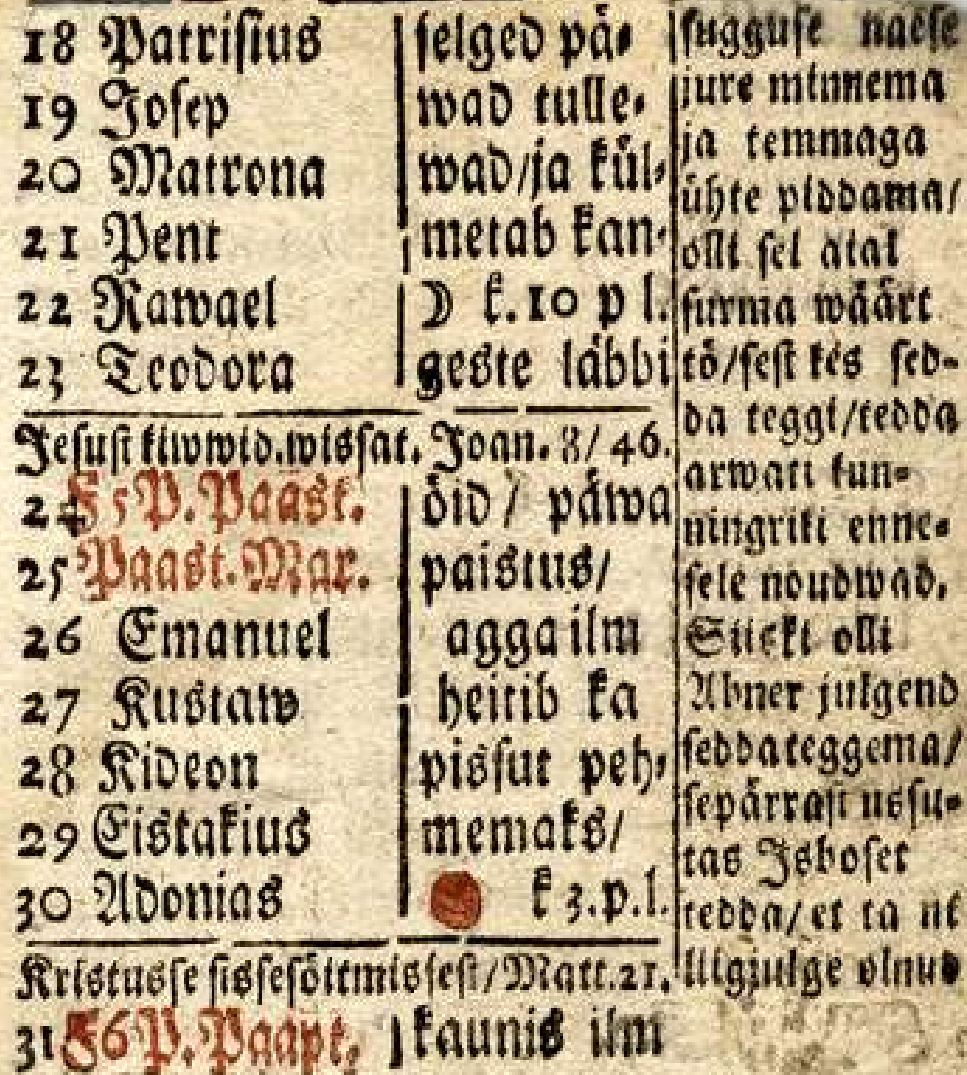 18 Patrisius
19 Josep
20 Matrona
21 Pent
22 Rawael
23 Teodora
selged pä-
wad tulle-
wad/ja kül-
metab kan-
☽ k.10 p l.
geste läbbi
Jesust kiwwid.wissat. Joan. 8/46.
24 F5P.Paast.
25 Paast.Mar.
26 Emanuel
27 Kustaw
28 Kideon
29 Eistakius
30 Adonias
öid / päwa
paistus/
agga ilm
heitib ka
pissut peh-
memaks/
k 3.p.l.
Kristusse sissesöitmissest/Matt.21.
31 F6P.Paapt.
kaunis ilm
sugguse naese
jure minnema
ja temmaga
ühte piddama/
olli sel aial
surma wäärt
tö/sest kes sed-
da teggi/tedda
arwati kun-
ningriki enne-
sele noudwad.
Siiski olli
Abner julgend
seddateggema/
sepärrast ussu-
tas Isboset
tedda/et ta ni
liigjulge olnud